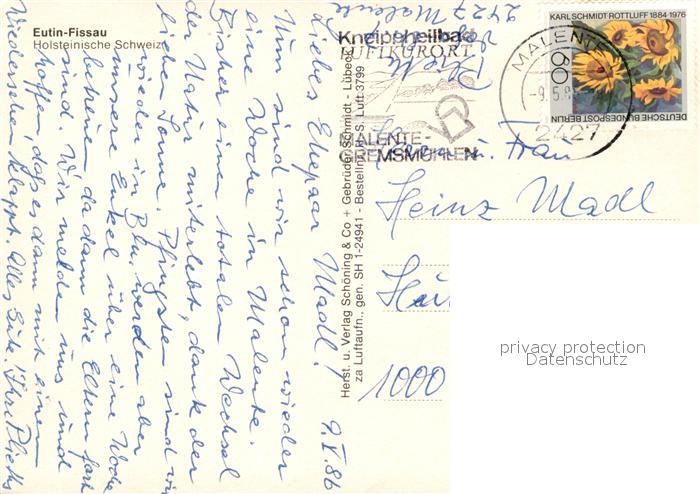 Eutin-Fissau
Holsteinische Schweiz
9.V.86
Liebes Ehepaar Madl!
Nun sind wir schon wieder
eine Woche in Malente.
Bisher einen totalen Wechsel
der Natur miterlebt, dank der
lieben Sonne. Pfingsten sind wir
wieder in Bln, werden aber
unseren Enkel über eine Woche
betreuen, da dann die Eltern fort
sind. Wir melden uns und
hoffen, daß es dann mit einem
Wiedersehn klappt. Alles Gute! Ihre
Herst. u. Verlag Schöning & Co + Gebrüder Schmidt - Lübeck
zu Luftaufn., gen. SH 1-24941 - Bestellnr. H-S. Luft 3799
2427 Malente
Kneippheilbad
LUFTKURORT
MALENTE-
GREMSMÜHLEN
MALENTE
-9.5.8
2427
KARL SCHMIDT-ROTTLUFF 1884-1976
60
DEUTSCHE BUNDESPOST BERLIN
u. Frau
Heinz Madl
1000
privacy protection
Datenschutz